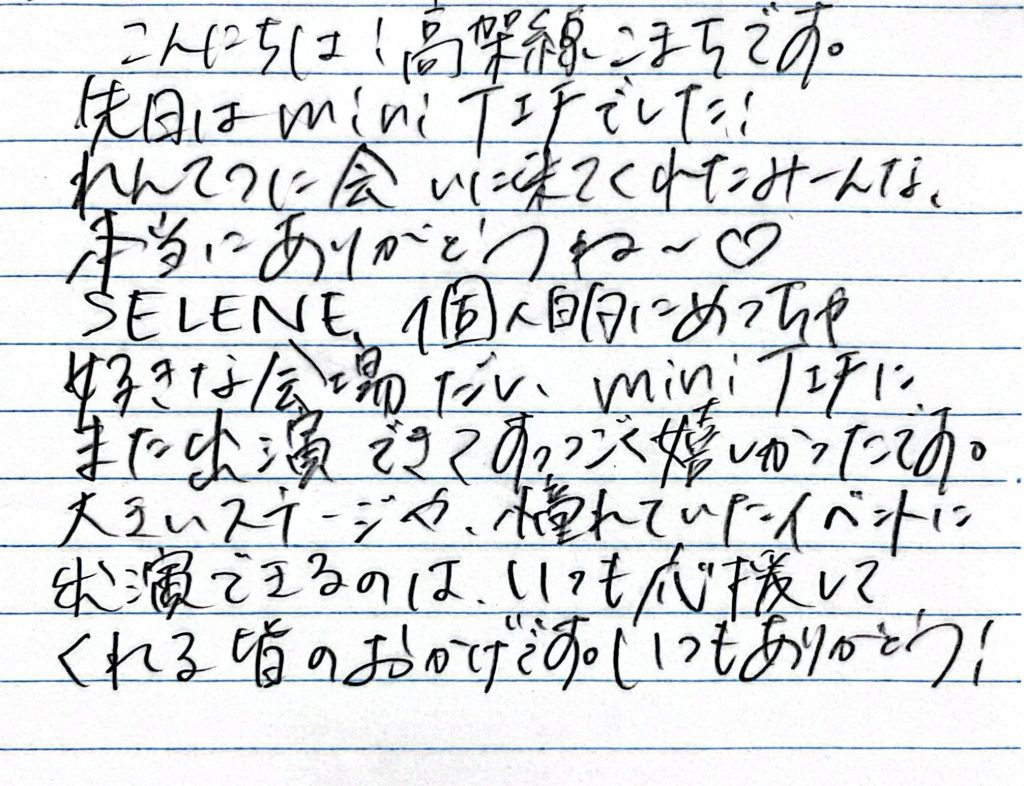 こんにちは!高架線こまちです。
先日はmini TIFでした!
れんてつに会いに来てくれたみーんな、
本当にありがとうね~♡
SELENE、個人的にめっちゃ
好きな会場だし、mini TIFに
また出演できてすっごく嬉しかったです。
大きいステージや、憧れていたイベントに
出演できるのは、いつも応援して
くれる皆のおかげです。いつもありがとう!